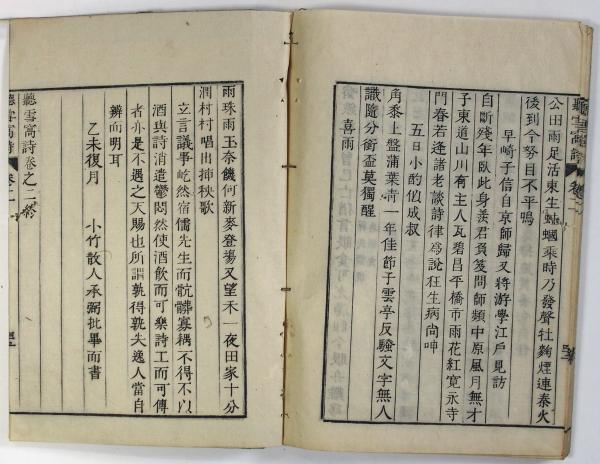 公田雨足活東生蚰蟈乘時乃發聲牡鞠煙連泰火
後到今努目不平鳴
早崎子信自京師歸又將游學江戶見訪
自斷殘年臥此身羨君負笈問師頻中原風月無才
子東道山川有主人瓦碧昌平橋市雨花紅寬永寺
門春若逢諸老談詩律爲說狂生病尚呻
五日小酌似成叔
角黍上盤蒲葉青一年佳節子雲亭反騷文字無人
識隨分銜盃莫獨醒
喜雨
雨珠雨玉奈饑何新麥登場又望禾一夜田家十分
潤村村唱出挿秧歌
立言議事屹然宿儒先生而骯髒寡耦不得不以
酒與詩消遣鬱悶然使酒飲而可樂詩工而可傳
者亦是不遇之天賜也所謂孰得孰失逸人當自
辨而明耳
乙未復月
小竹散人承弼批畢而書
聽雪窩詩卷之二終
聽雪窩詩
卷之二